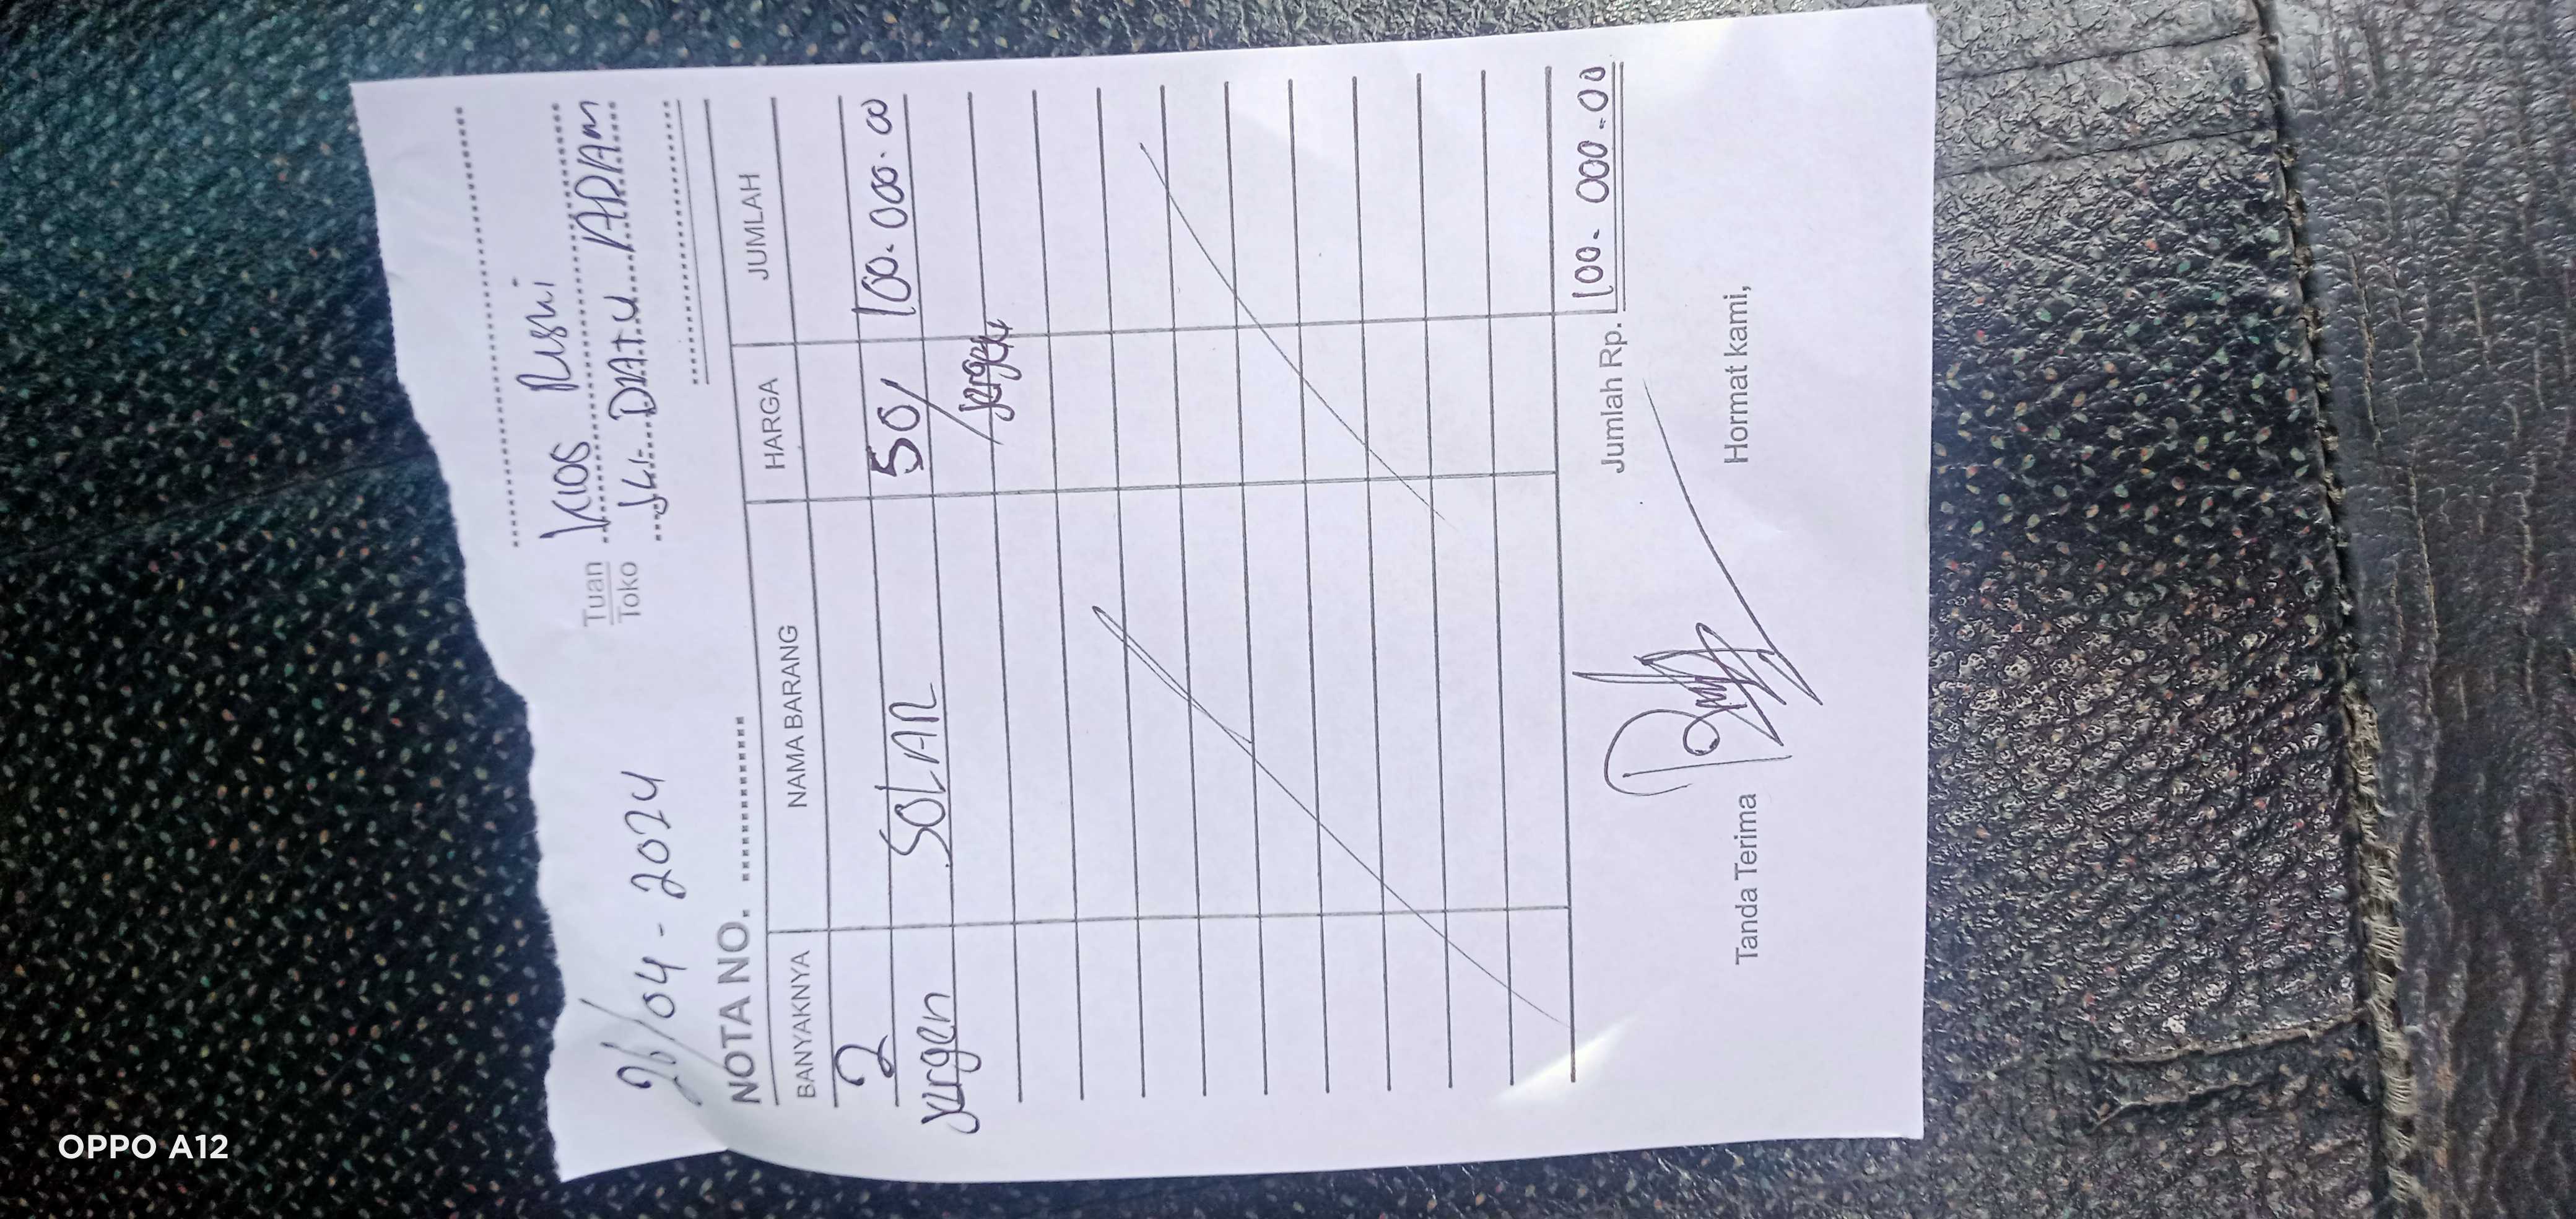 26/04-2024
Tuan Kios Rismi
Toko Jln. DATU ADAM
NOTA NO.
BANYAKNYA NAMA BARANG HARGA JUMLAH
2 SOLAR 50/ 100.000.00
Jergen /Jergen
Jumlah Rp. 100.000.00
Tanda Terima Hormat kami,
OPPO A12